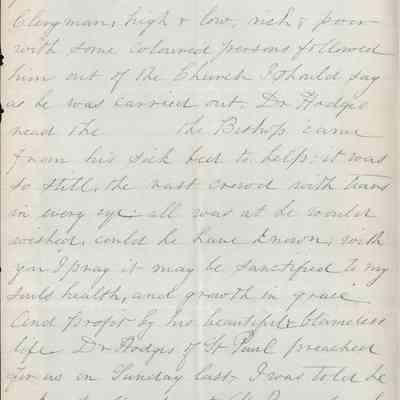 Clergman, high & low, rich & poor
with some coloured persons followed
him out of the Church I should say
as he was carried out. Dr Hodges
read the the Bishop came
from his sick bed to help: it was
so still, the vast crowd with tears
in every eye: all was as he would
wished, could he have known, with
you I pray it may be sanctified to my
souls health, and growth in grace
and profit by his beautiful & blameless
life. Dr Hodges of St Paul preached
for us on Sunday last. I was told he